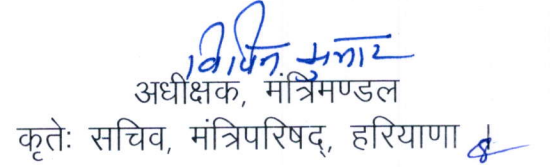 विपिन कुमार
अधीक्षक, मंत्रिमण्डल
कृतेः सचिव, मंत्रिपरिषद्, हरियाणा ।